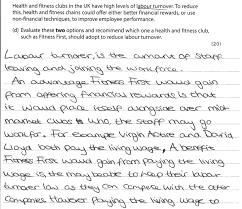 Health and fitness clubs in the UK have high levels of labour turnover. To reduce
this, health and fitness chains could offer either better financial rewards, or use
non-financial techniques, to improve employee performance.
(d) Evaluate these two options and recommend which one a health and fitness club,
such as Fitness First, should adopt to reduce labour turnover.
(20)
Labour turnover, is the amount of staff
leaving and joining the workforce.
An advantage Fitness First would gain
from offering financial rewards is that
it would place itself alongside over mid-
market clubs who, the staff may go
work for. For example Virgin Active and David
Lloyd both pay the living wage, A benefit
Fitness First would gain from paying the living
wage is the may be able to help their labour
turnover low as they can compete with the other
companies However paying the living wage to